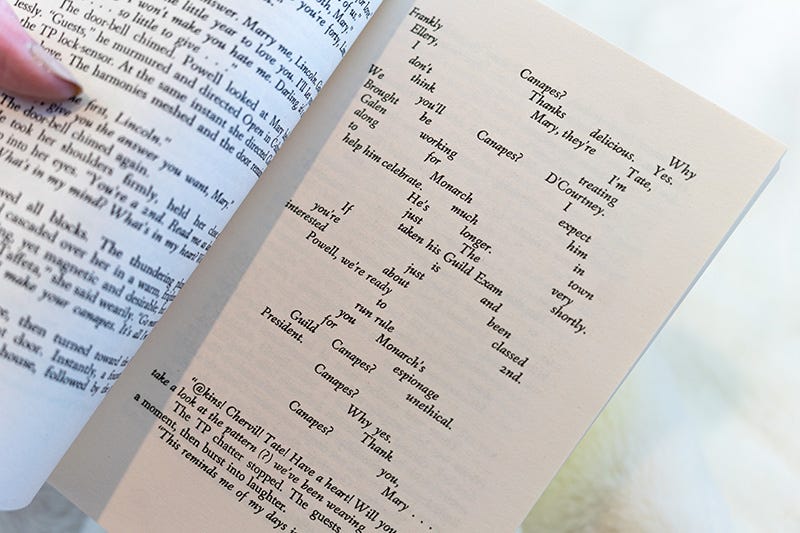 answer. Marry me, Lincoln
the little year to love you. I'll
. . . so little to give . . .
won't make you hate me. Darling
The door-bell chimed. Powell looked at Mary
lessly. "Guests," he murmured and directed Open in
the TP lock-sensor. At the same instant she directed
The harmonies meshed and the door
first, Lincoln."
give you the answer you want, Mary,
The door-bell chimed again.
took her shoulders firmly, held her
into her eyes. "You're a 2nd. Read me
What's in my mind? What's in my heart?
all blocks. The thundering
cascaded over her in a warm,
yet magnetic and desirable
she said wearily,
make your canapes. It's all
then turned toward
door. Instantly, a
house, followed by
Frankly
Ellery,
I
don't
think
you'll
be
working
for
Monarch
much
longer.
The
Guild Exam
Canapes?
Thanks
delicious.
Mary, they're
Why
Yes.
Tate,
I'm
treating
D'Courtney.
I
expect
him
in
town
very
shortly.
We
Brought
Galen
along
to
help him celebrate.
He's
just
taken his
and
been
classed
2nd.
Canapes?
If
you're
interested
Powell, we're ready
to
run
you
for
Guild
President.
just
is
about
rule
Monarch's
espionage
unethical.
Canapes?
Canapes?
Why yes.
Canapes?
Thank
you,
Mary . . .
"@kins! Chervil! Tate! Have a heart! Will you
take a look at the pattern (?) we've been weaving
The TP chatter stopped. The guests
a moment, then burst into laughter.
"This reminds me of my days